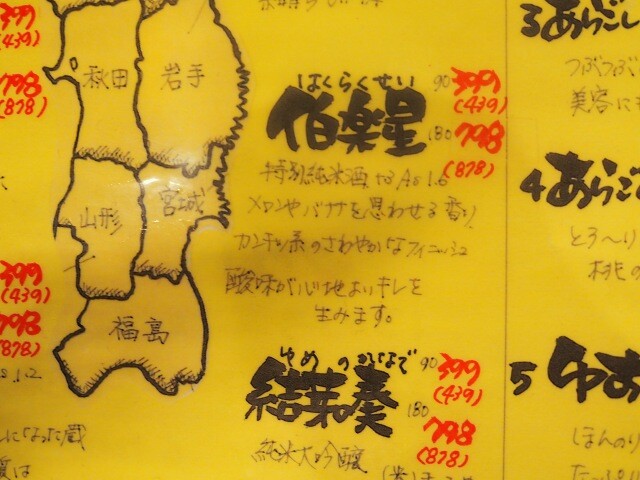 399
(439)
798
(878)
399
(439)
798
(878)
1.2
になった蔵
秋田
岩手
山形
宮城
福島
はくらくせい
伯楽星
90 399
(439)
180 798
(878)
特別純米酒 to Ac 1.6
メロンやバナナを思わせる香り
カプ系のさわやかなフィニッシュ
酸味が心地よいキレを
生みます。
ゆめのかなで
結芽の奏
90 399
(439)
180 798
(878)
純米大吟醸
3 あらごし
つぶつぶ
美容に
4 あらご
とろ〜り
桃の
5 ゆず
ほんのり
たっぷり